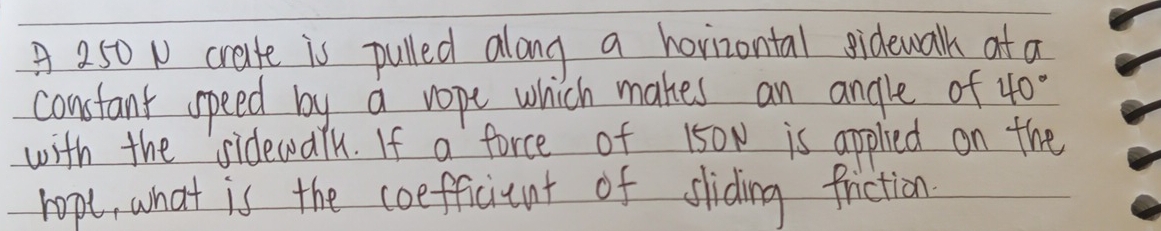 A 250 N crate is pulled along a horizontal sidewalk at a
constant speed by a rope which makes an angle of 40°
with the sidewalk. If a force of 150N is applied on the
rope, what is the coefficient of sliding friction.